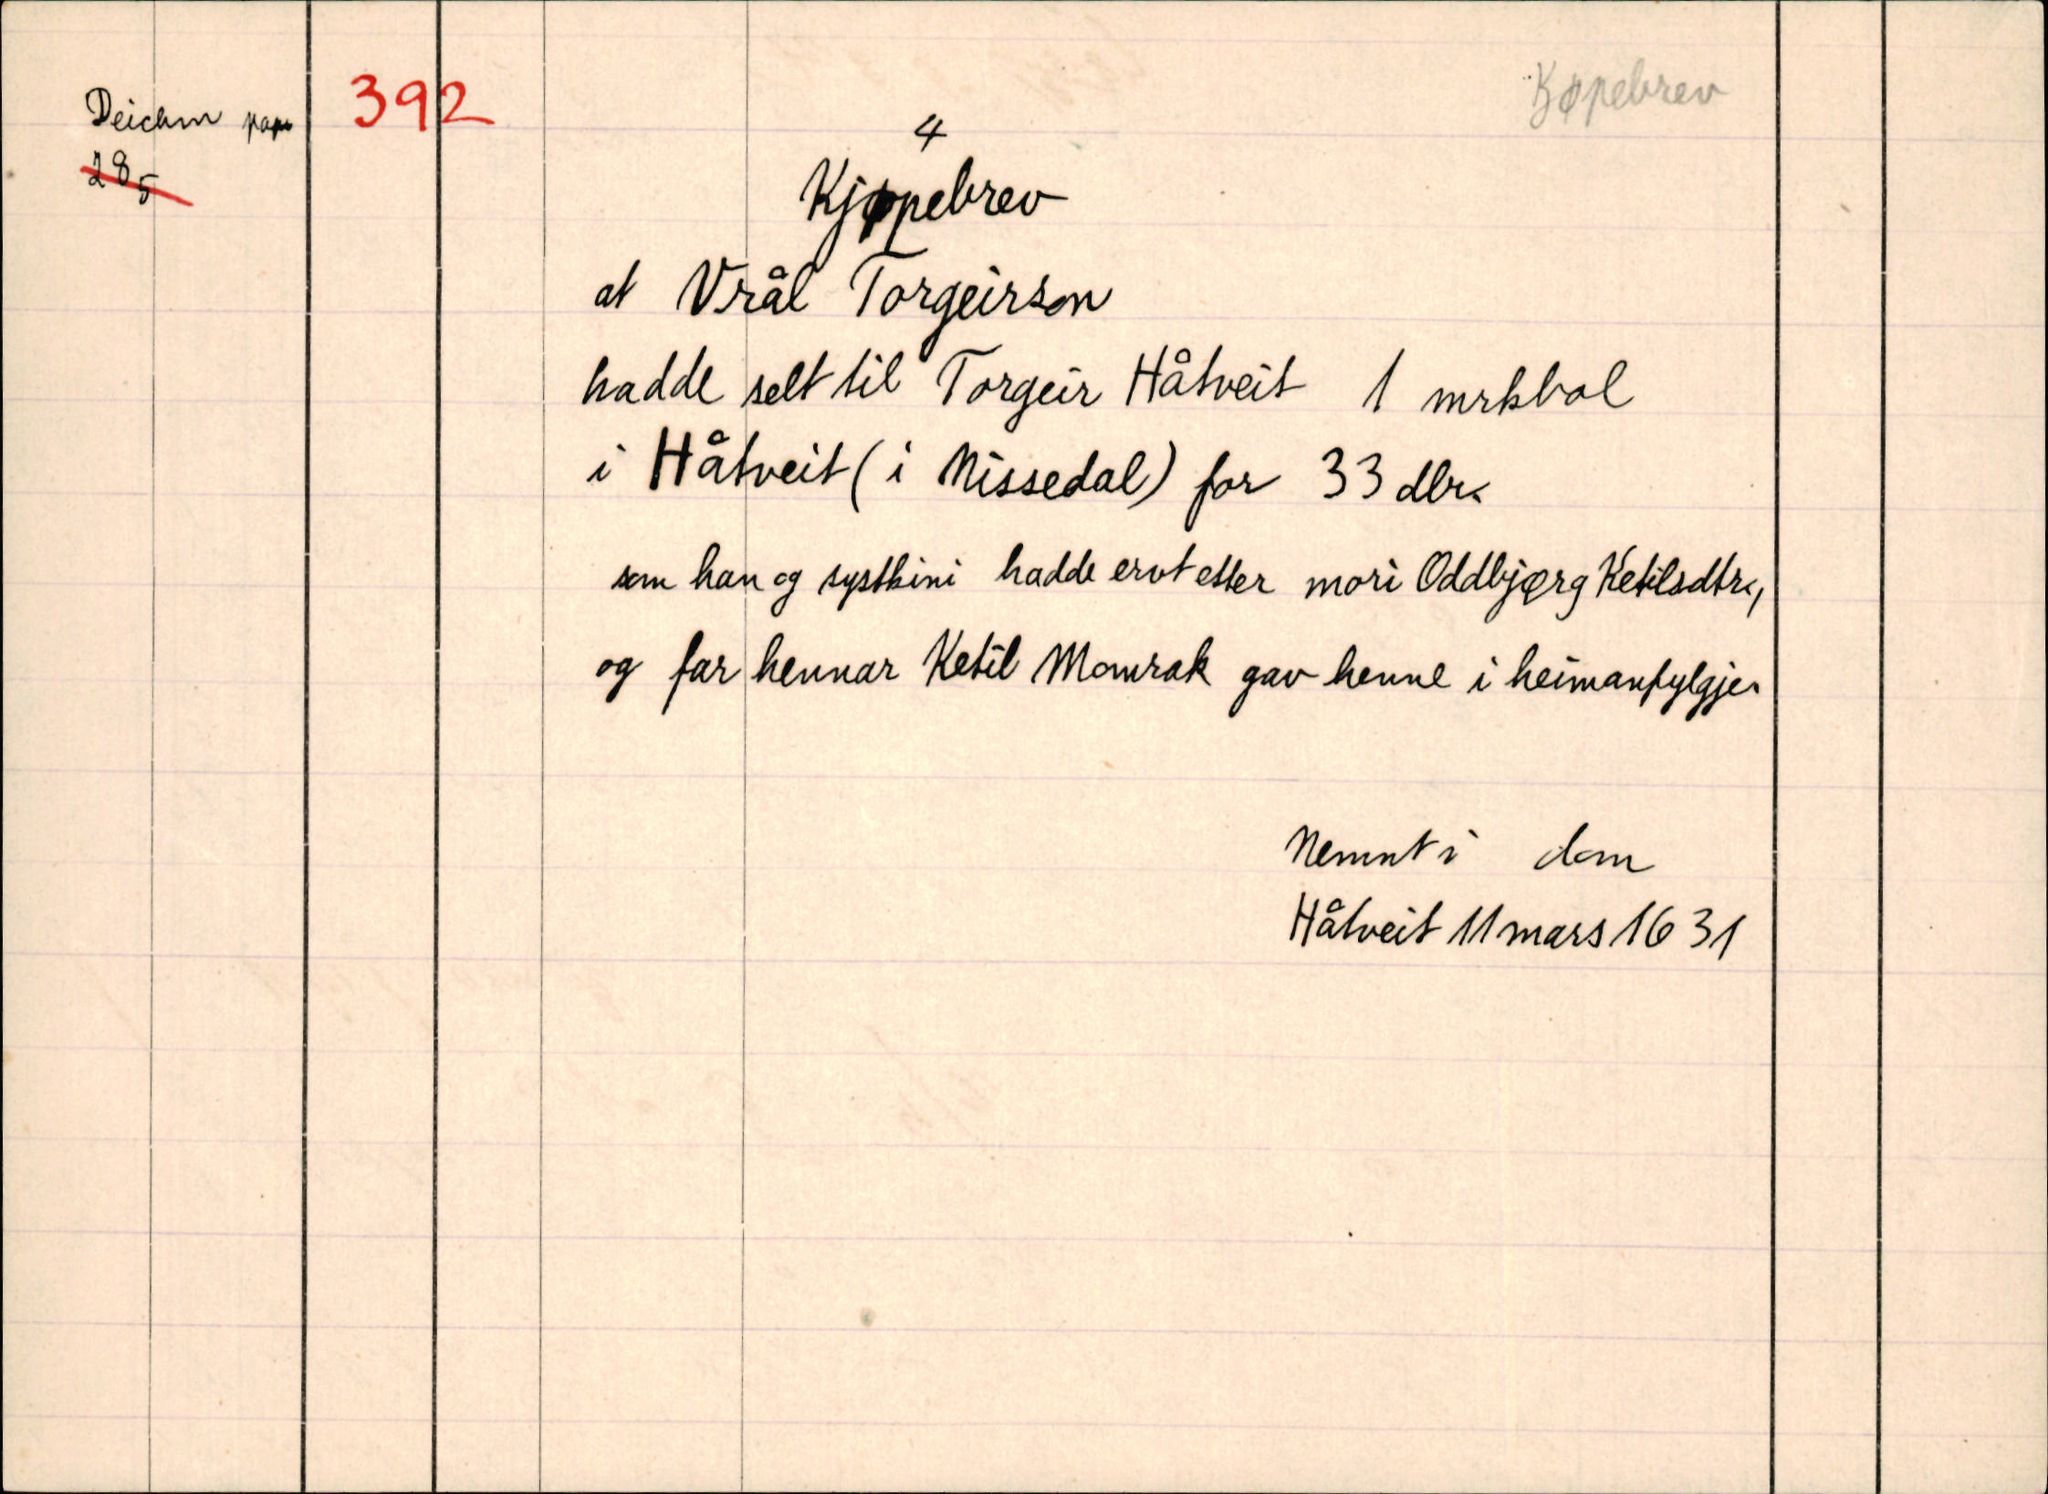 Deichm pap 392 Kjøpebrev
285
4
Kjøpebrev
at Vrål Torgeirson
hadde selt til Torgeir Håtveit 1 mrkbol
i Håtveit (i Nissedal) for 33 dlr.
som han og systkini hadde ervt etter mori Oddbjørg Ketilsdtr.,
og far hennar Ketil Momrak gav henne i heimanfylgje.
Nemnt i dom
Håtveit 11 mars 1631